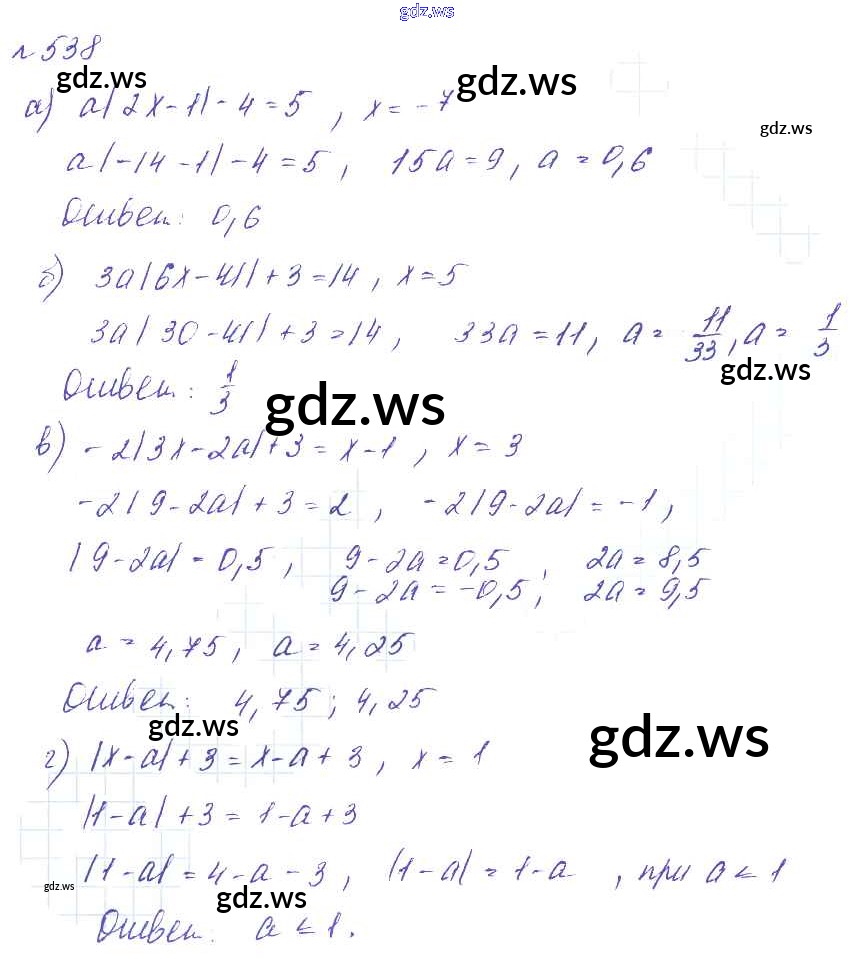 gdz.ws
№ 538
gdz.ws gdz.ws
а) a|2x-1|-4=5, x=-7
gdz.ws
a|-14-1|-4=5, 15a=9, a=0,6
Ответ: 0,6
б) 3a|6x-41|+3=14, x=5
3a|30-41|+3=14, 33a=11, a= 11/33, a= 1/3
gdz.ws
Ответ: 1/3
gdz.ws
в) -2|3x-2a|+3=x-1, x=3
-2|9-2a|+3=2, -2|9-2a|=-1,
|9-2a|=0,5, 9-2a=0,5, 2a=8,5
9-2a=-0,5; 2a=9,5
a=4,75, a=4,25
Ответ: 4,75; 4,25
gdz.ws gdz.ws
г) |x-a|+3=x-a+3, x=1
|1-a|+3=1-a+3
|1-a|=4-a-3, |1-a|=1-a, при a≤1
gdz.ws gdz.ws
Ответ: a≤1.